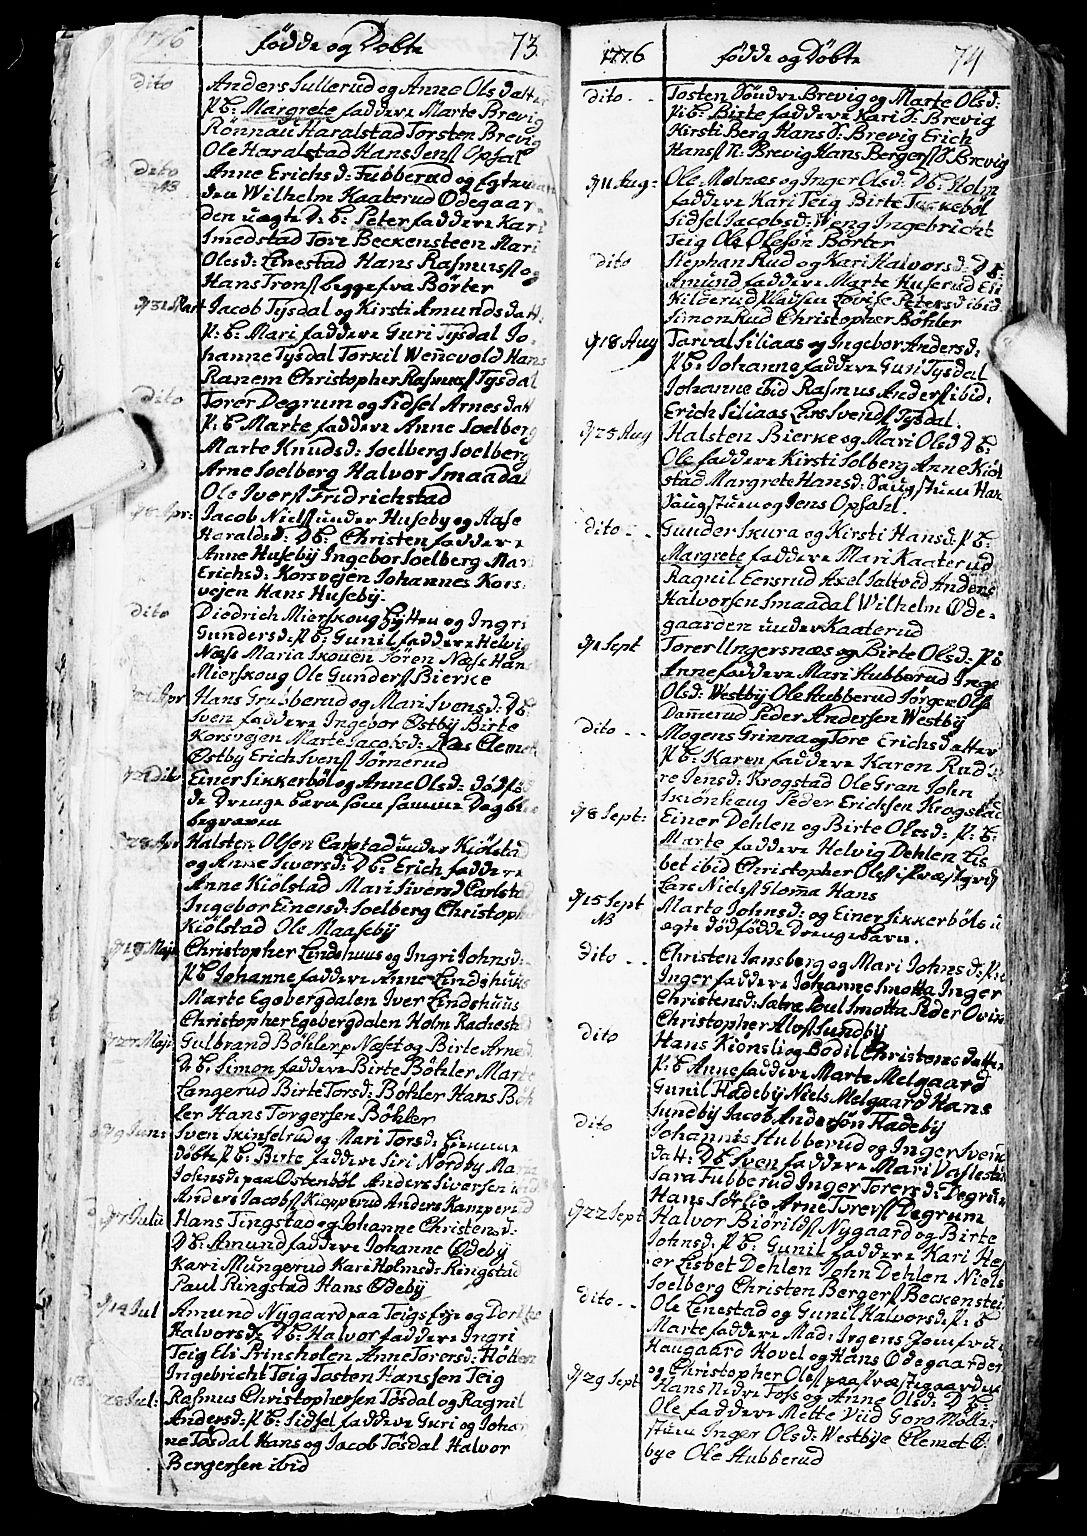 1776 födde og Döbte 73
dito Anders Sullerud og Anne Olsdatter
P: B: Margrete faddere Marte Brevig
Rönnau Haralstad Torsten Brevig
Ole Haralstad Hans Jens Opsal
dito Anne Erichsd: Fubberud og
Wilhelm Kaaterud Ödegaar
den uægte D: B: Peter faddere Kari
Smedstad Tore Beckensteen Mari
Olesd: Linestad Hans Rasmuss og
Hans Trons begge fra Börter
31 Mart Jacob Tysdal og Kirsti Amundsdatt:
P: B: Mari faddere Guri Tysdal Jo
hanne Tysdal Torkil Wenevold Hans
Ranem Christopher Rasmuss Tysdal
dito Torer Degrum og Sidsel Arnesdatt
P: B: Marte faddere Anne Soelberg
Marte Knudsd: Soelberg Soelberg
Arne Soelberg Halvor Smaadal
Ole Ivers Fridrichstad
Apr: Jacob Niels under Huseby og Aase
Haraldsd: D: B: Christen faddere
Anne Huseby Ingebor Soelberg Mari
Erichsd: Korsvejen Johannes Kors:
vejen Hans Huseby.
dito Diedrich Mierskoug Hytten og Ingri
Gundersd: P: B: Gunil faddere Helvig
Næss Maria Skouen Sören Næss Hans
Mierskoug Ole Gunders Bierke
Apr Hans Gruberud og Mari Svensd: D: B:
Sven faddere Ingebor Östby Birte
Korsvejen Marte Jacobsd: Næs Clemet
Östby Erich Svens Tornerud
dito Einer Sikkerböl og Anne Olsd: dödföd
de Drenge Barn som samme Dag blev
begraven
28 Apr Halsten Olsen Carlstad under Kiölstad
og Anne Siversd: D: B: Erich faddere
Anne Kiölstad Mari Siversd Carlstad
Ingebor Einersd: Soelberg Christopher
Kiölstad Ole Maaseby
19 Maji Christopher Lindshuus og Ingri Johnsd:
P: B Johanne faddere Anne Lindshuus
Marte Egebergdalen Iver Lindshuus
Christopher Egebergdalen Holm Rachestad
27 Maji Gulbrand Böhler p Næset og Birte Arnesd.
D: B: Simon faddere Birte Böhler Marte
Langerud Birte Torsd: Böhler Hans Böh
ler Hans Torgersen Böhler
9 Juni Sven Skinselrud og Mari Torsd: hiemme
Döbte P: B: Birte faddere Siri Nordby Maria
Johnsd: paa Östenböl Anders Siversen ibid
Anders Jacobs Kiepperud Anders Kamperud
7 Julii Hans Tingstad og Johanne Christensd:
D: B: Amund faddere Johanne Ödeby
Kari Mungerud Kari Holmsd: Ringstad
Paul Ringstad Hans Ödeby
14 Jul Amund Nygaard paa Teigs eje og Dorthe
Halvorsd: D: B: Halvor faddere Ingri
Teig Els Prinsholen Anne Torersd: Hötten
Ingebricht Teig Tosten Hanssen Teig
28 Jul: Rasmus Christophersen Tösdal og Ragnil
Andersd: P: B: Sidsel faddere Guri og Johan
ne Tösdal Hans og Jacob Tösdal Halvor
Bergersen ibid
1776 födde og Döbte 74
dito - - Tosten Söndre Brevig og Marte Olsd:
P: B: Birte faddere Kari S: Brevig
Kirsti Berg Hans S: Brevig Erich
Hanss N: Brevig Hans Bergers S Brevig
11 Aug: Ole Molnæs og Inger Olsd: D: B: Holm
faddere Kari Teig Birte Tackeböl
Sidsel Jacobsd: Weng Ingebricht
Teig Ole Olesön Börter
dito Stephan Rud og Kari Halvorsd: D B:
Amund faddere Marte Huserud Eli
Kilderud Lovise Petersd ibid
Simon Rud Christopher Böhler
18 Aug Tarval Siliaas og Ingebor Andersd:
P: B: Johanne faddere Guri Tysdal
Johanne ibid Rasmus Anders ibid:
Erich Siliaas Lars Svends Tysdal.
25 Aug Halsten Bierke og Mari Olsd D B:
Ole faddere Kirsti Solberg Anne Kiöl
stad Margrete Hansd: Haugstuen Hans
Haugstuen og Jens Opsal.
dito - - Gunder Skura og Kirsti Hansd: P: B:
Margrete faddere Mari Kaaterud
Ragnil Eersrud Axel Saltved Anders
Halvorsen Smaadal Wilhelm Öde-
gaarden under Kaaterud
1 Sept Torer Ungersnæs og Birte Olsd: P: B
Anne faddere Mari Hubberud Inge
Olsd: Westby Ole Hubberud Jörgen Olss
Damerud Peder Andersen Westby
dito - - Mogens Grinna og Tore Erichsdatter
P: B: Karen faddere Karen Rud
re Jensd: Krogstad Ole Gran John
Skiönhaug Peder Erichsen Krogstad
8 Sept: Einer Dehlen og Birte Olesd: P: B:
Marte faddere Helvig Dehlen Lis
bet ibid Christopher Ols
Lars Niels Glomma Hans
15 Sept Marte Johnsd: og Einer Sikkerböls u
NB ægte dödfödde Drenge Barn.
Dito - - Christen Jansberg og Mari Johnsd: P: B
Inger faddere Johanne Smotta Inger
Christensd: Sætre Poul Smotta Peder Ovin
Christopher Alvss Sundby
dito Hans Kionsli og Bodil Christensdatter
P: B Anne faddere Marte Melgaard
Gunil Hadeby Niels Melgaard Hans
Sundby Jacob Andersön Hadeby
dito Johannis Hubberud og Inger Svens
datt: D: B: Sven faddere Mari Vaslestad
Sara Fubberud Inger Torersd: Degrum
Hans Sörlie Arne Torers Degrum
22 Sept Halvor Biörilds Nygaard og Birte
Johnsd: P: B: Gunil faddere Kari
Lisbet Dehlen John Dehlen Niels
Soelberg Christen Bergers Beckenstein
dito - - Ole Linestad og Gunil Halvorsd: P: B
Marte faddere Mad: Irgens Jomfrue
Haugaard Hovel og Hans Ödegaarden
og Christopher Ols paa Præstegaarden
29 Sept Hans Nedre Foss og Anne Olsd: D: B:
Ole faddere Mette Viid Goro Möller
stuen Inger Olsd: Westbye Clemet
bye Ole Hubberud